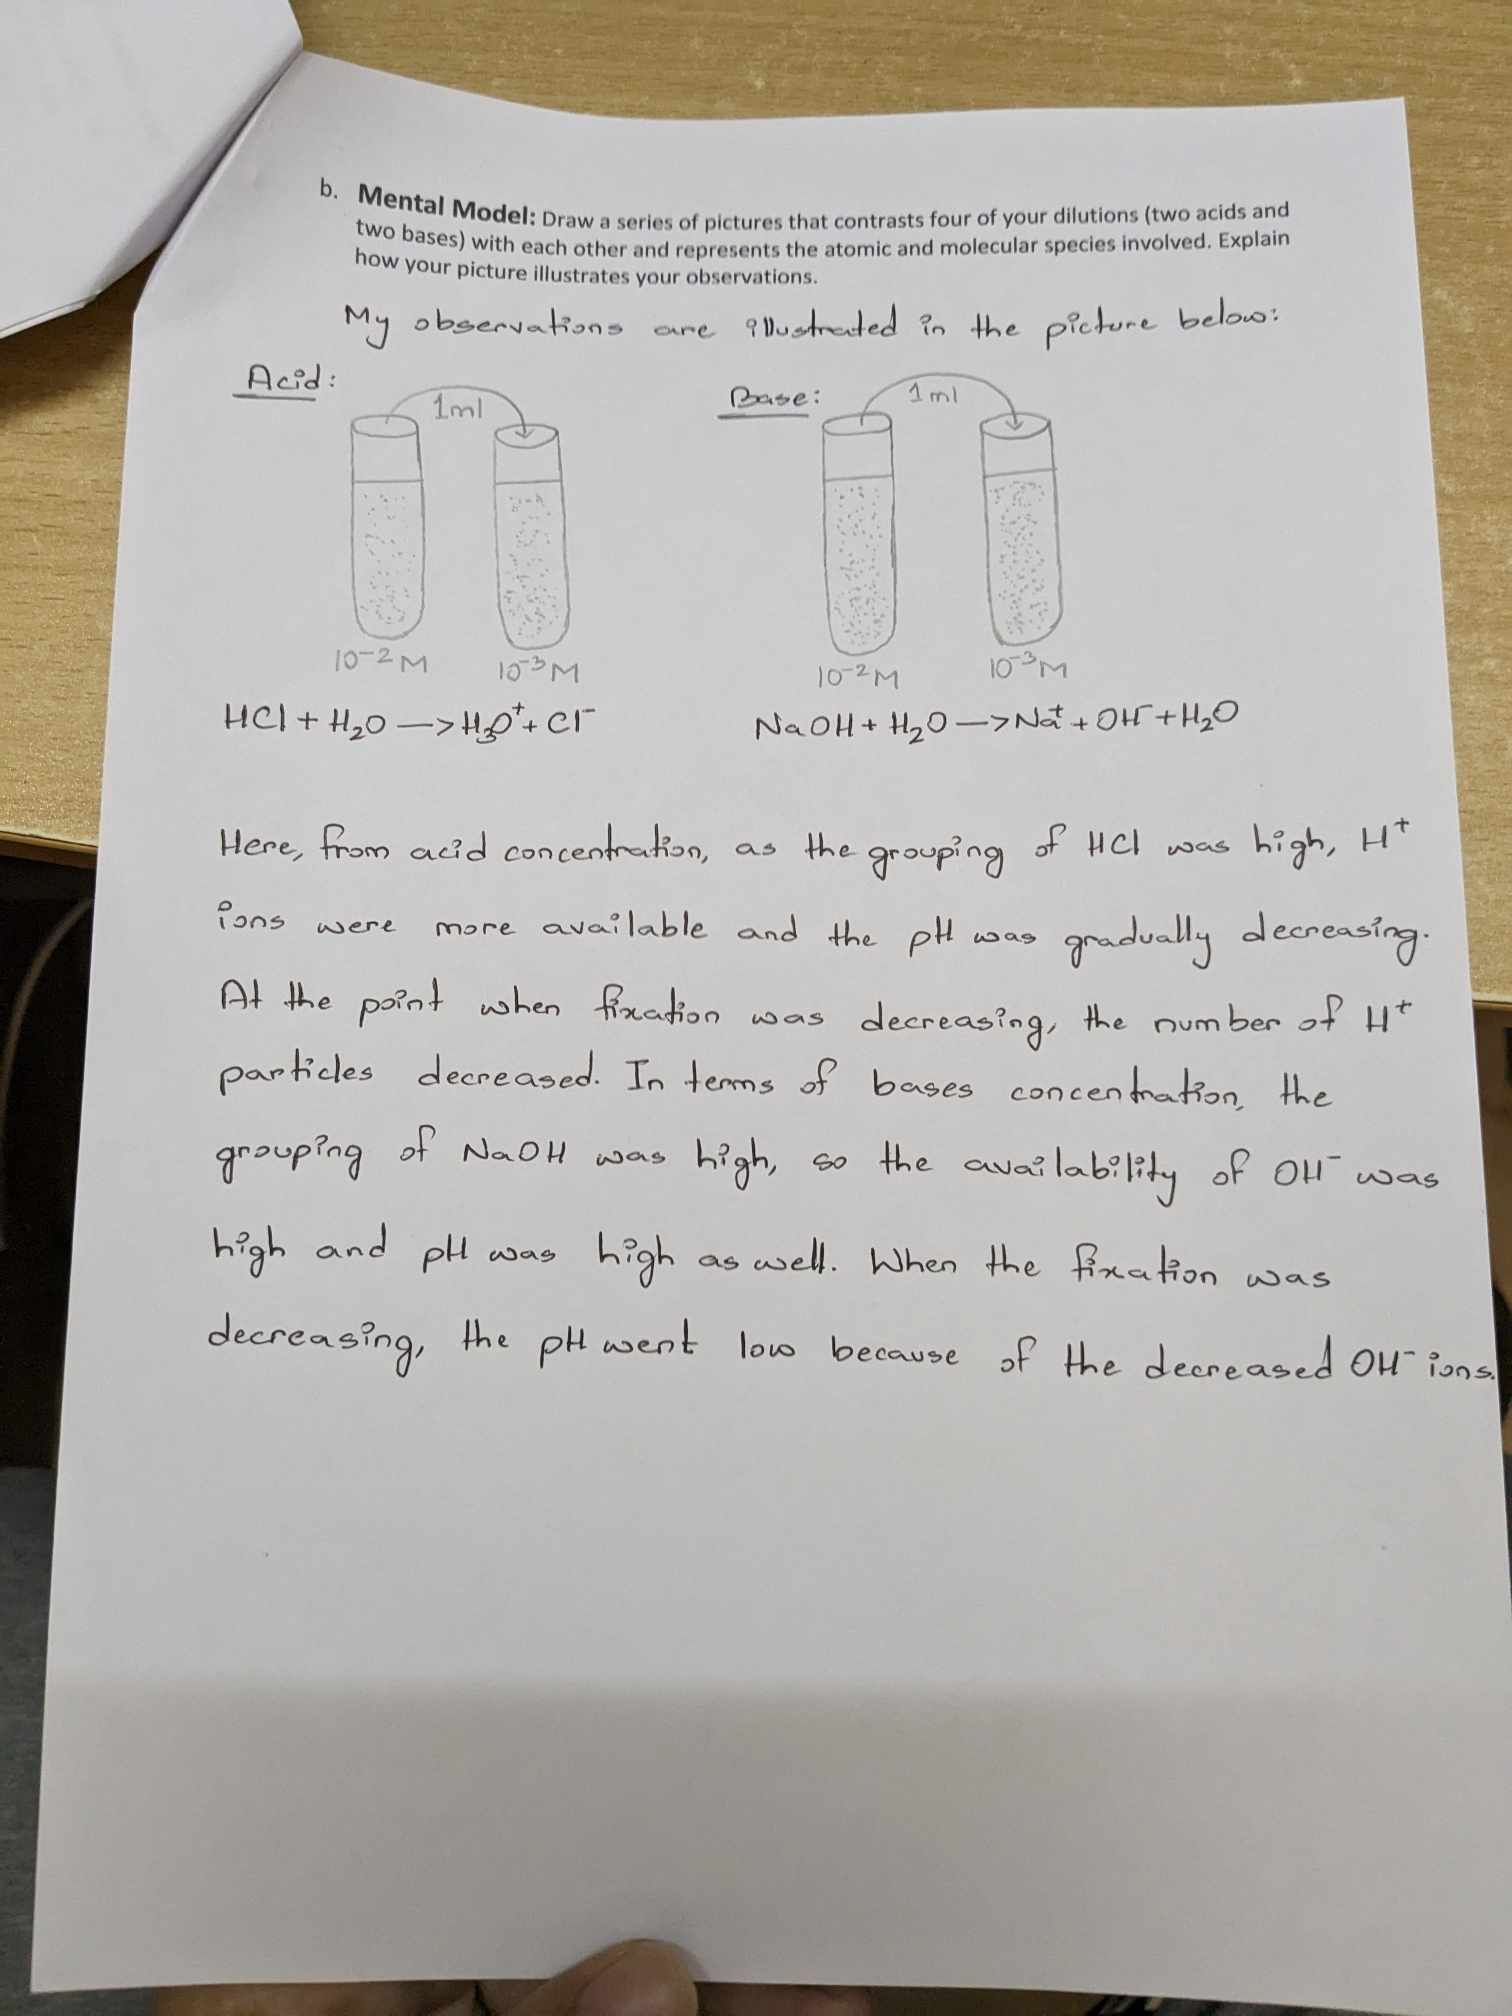 b. Mental Model: Draw a series of pictures that contrasts four of your dilutions (two acids and
two bases) with each other and represents the atomic and molecular species involved. Explain
how your picture illustrates your observations.
My observations are illustrated in the picture below:
Acid:
1ml
10⁻² M
10⁻³ M
HCl + H₂O —> H₃O⁺ + Cl⁻
Base:
1ml
10⁻² M
10⁻³ M
NaOH + H₂O —> Na⁺ + OH⁻ + H₂O
Here, from acid concentration, as the grouping of HCl was high, H⁺
ions were more available and the pH was gradually decreasing.
At the point when fixation was decreasing, the number of H⁺
particles decreased. In terms of bases concentration, the
grouping of NaOH was high, so the availability of OH⁻ was
high and pH was high as well. When the fixation was
decreasing, the pH went low because of the decreased OH⁻ ions.